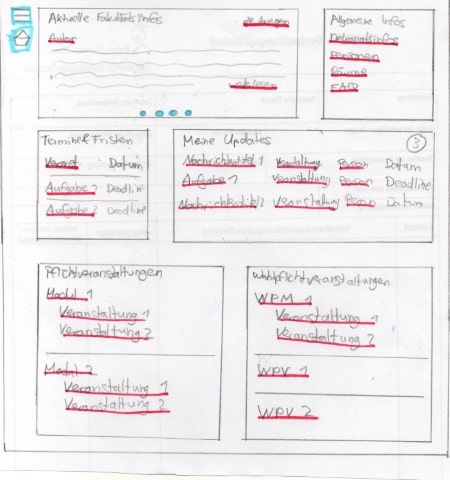 Aktuelle Fakultätsinfos
alle Anzeigen
Autor
Allgemeine Infos
Dekanatsinfos
Personen
Räume
FAQ
Termine & Fristen
Veranst. Datum
Aufgabe 1 Deadline
Aufgabe 2 Deadline
Meine Updates 3
Nachrichtentitel 1 Veranstaltung Person Datum
Aufgabe 1 Veranstaltung Person Deadline
Nachrichtentitel 2 Veranstaltung Person Datum
Pflichtveranstaltungen
Modul 1
Veranstaltung 1
Veranstaltung 2
Modul 2
Veranstaltung 1
Veranstaltung 2
Wahlpflichtveranstaltungen
WPM 1
Veranstaltung 1
Veranstaltung 2
WPV 1
WPV 2